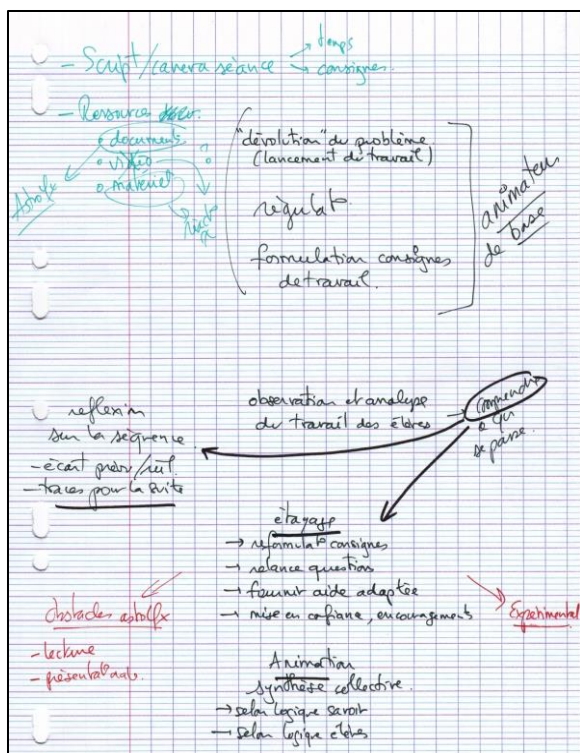 - Script/camera séance → temps
→ consignes.
- Ressources
• documents
• vidéo
• matériel
Astolfx
"dévolution" du problème
(lancement du travail)
régulat°
formulation consignes
de travail.
animateur
de base
observation et analyse
du travail des élèves
→ comprendre
ce qui
se passe.
reflexion
sur la séquence.
- écart prév/réel.
- traces pour la suite
étayage
→ reformulat° consignes
→ relance questions
→ fournir aide adaptée
→ mise en confiance, encouragements
Obstacles astolfx
- lecture
- présentat°
Expérimental
Animation
synthèse collective.
→ selon logique savoir
→ selon logique élèves